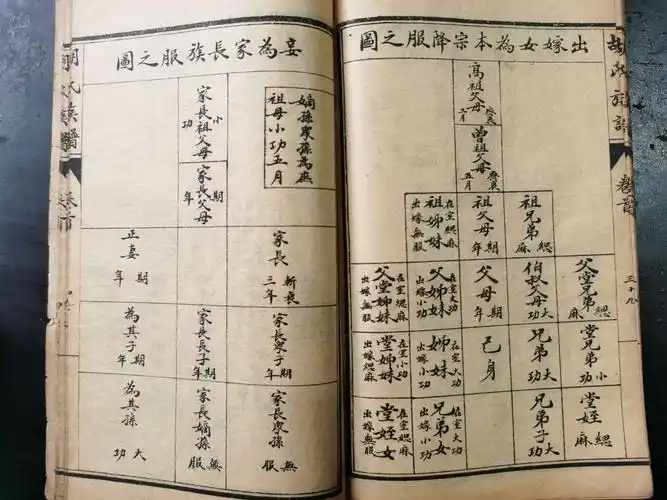 胡氏族譜
卷首
三十九
出嫁女為本宗降服之圖
高祖父母
齊衰三月
曾祖父母
齊衰五月
祖兄弟
緦麻
祖父母
期年
祖姊妹
在室緦麻
出嫁無服
父堂兄弟
緦麻
伯叔父母
大功
父母
期年
父姊妹
在室大功
出嫁小功
父堂姊妹
在室緦麻
出嫁無服
堂兄弟
小功
兄弟
大功
己身
姊妹
在室大功
出嫁小功
堂姊妹
在室小功
出嫁緦麻
堂姪
緦麻
兄弟子
大功
兄弟女
在室大功
出嫁小功
堂姪女
在室緦麻
出嫁無服
妾為家長族服之圖
嫡孫眾孫為庶
祖母小功五月
家長祖父母
小功
家長父母
期年
家長
斬衰三年
正妻
期年
家長眾子
期年
家長長子
期年
為其子
期年
家長眾孫
無服
家長嫡孫
無服
為其孫
大功
胡氏族譜
卷首